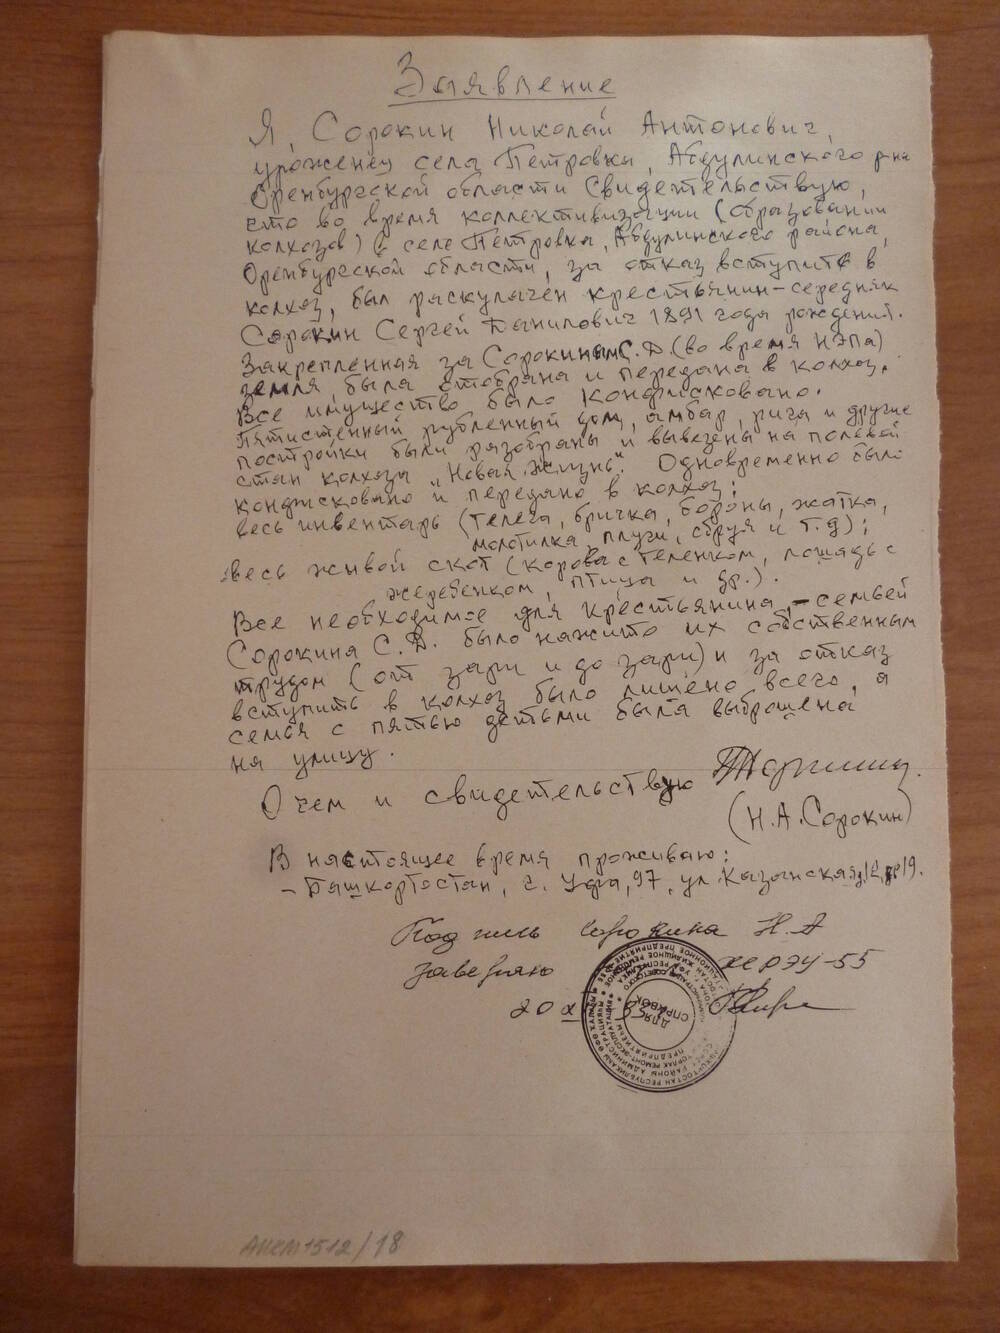 Заявление
Я, Сорокин Николай Антонович,
уроженец села Петровка, Абдулинского р-на
Оренбургской области свидетельствую,
что во время коллективизации (образовании
колхозов) в селе Петровка, Абдулинского района,
Оренбургской области, за отказ вступить в
колхоз, был раскулачен крестьянин-середняк
Сорокин Сергей Данилович 1891 года рождения.
Закрепленная за Сорокиным С.Д. (во время НЭПа)
земля была отобрана и передана в колхоз.
Все имущество было конфисковано.
Пятистенный рубленный дом, амбар, рига и другие
постройки были разобраны и вывезены на полевой
стан колхоза "Новая жизнь". Одновременно было
конфисковано и передано в колхоз:
весь инвентарь (телега, бричка, бороны, жатка,
молотилка, плуги, сбруя и т.д);
весь живой скот (корова с теленком, лошадь с
жеребенком, птица и др.).
Все необходимое для крестьянина, - семьей
Сорокина С.Д. было нажито их собственным
трудом (от зари и до зари) и за отказ
вступить в колхоз было лишено всего, а
семья с пятью детьми была выброшена
на улицу.
О чем и свидетельствую
(Н.А.Сорокин)
В настоящее время проживаю:
- Башкортостан, г. Уфа, 97, ул. Казанская
Подпись Сорокина Н.А
заверяю ЖРЭУ-55
20 X
ДЛЯ
СПРАВОК
АИКМ 1512/18